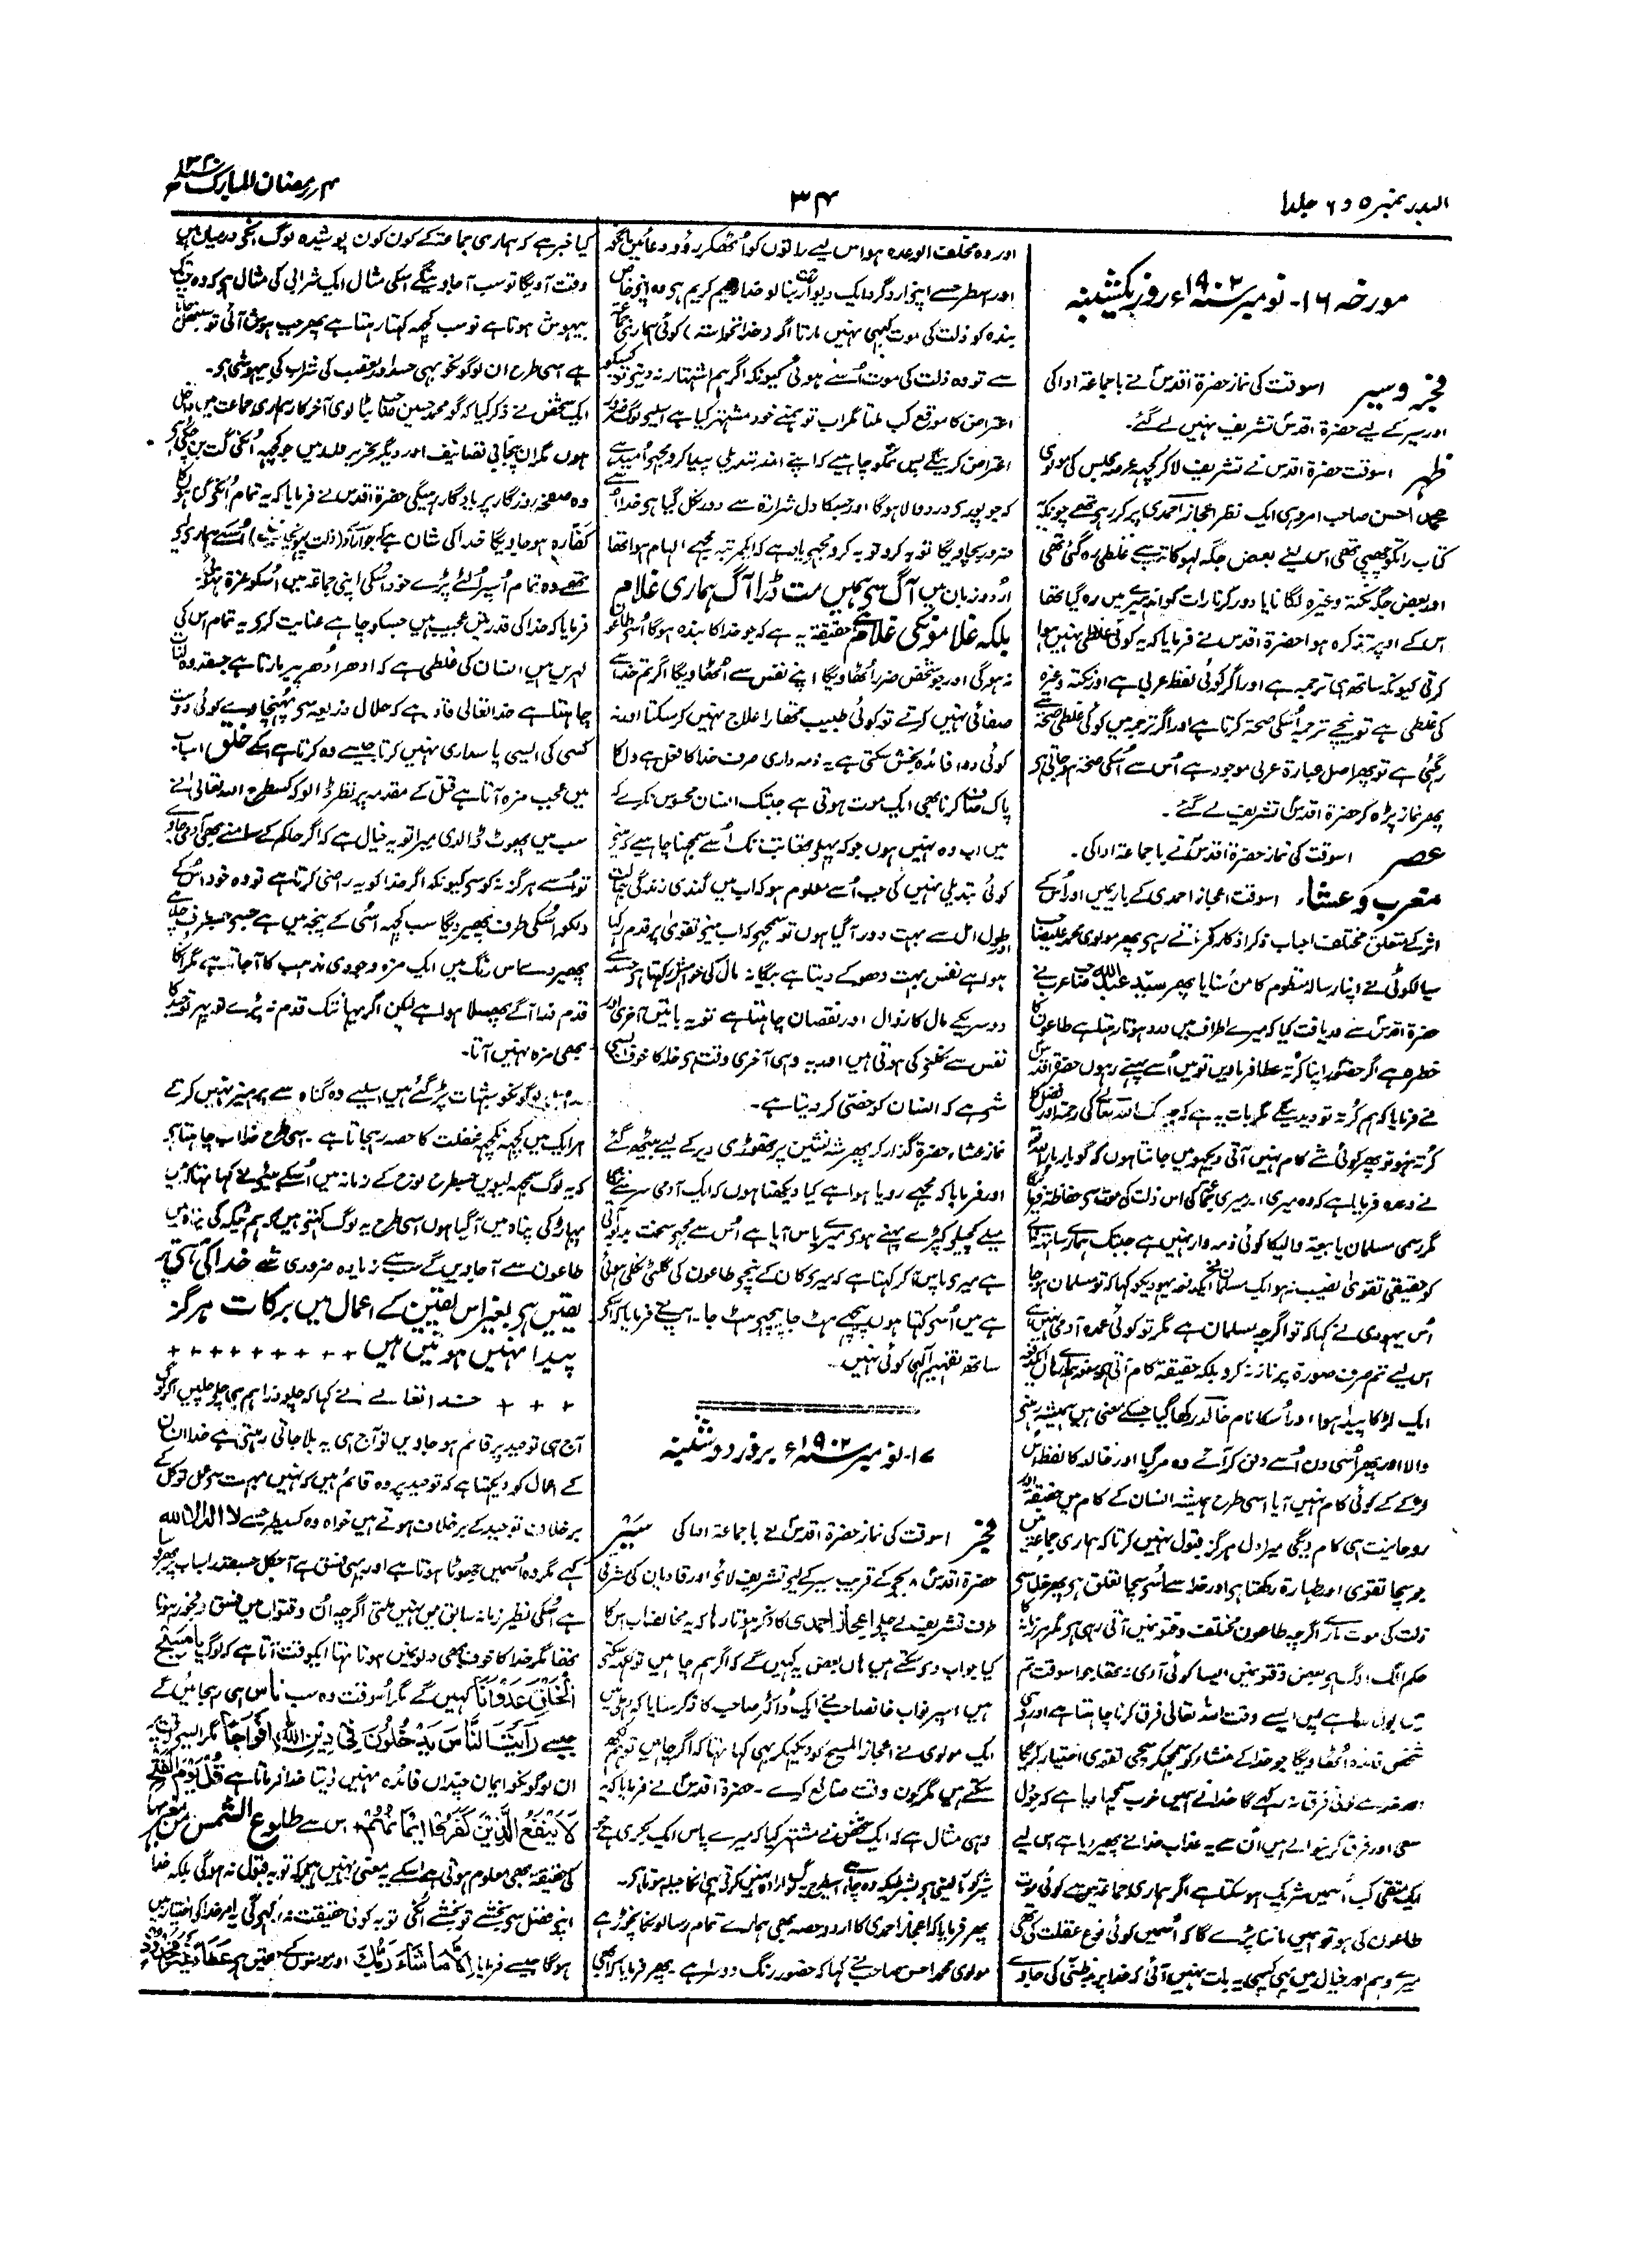 البدر نمبر ۵ و ۶ جلد ۱
۳۴
۴ رمضان المبارک ۱۳۲۰
مورخہ ۱۶۔ نومبر سنہ ۱۹۰۲ء روز یکشنبہ
فجر و سیر اسوقت کی نماز حضرۃ اقدسؑ نے باجماعۃ ادا کی
اور سیر کے لیے حضرۃ اقدس تشریف نہیں لے گئے۔
ظہر اسوقت حضرۃ اقدس نے تشریف لاکر کچھ عرصہ مجلس کی مولوی
محمد احسن صاحب امروہی ایک نظر اعجاز احمدی پر کر رہے تھے چونکہ
کتاب راتکو چھپی تھی اس لیئے بعض جگہ سہو کاتب سے غلطی رہ گئی تھی
اور بعض جگہ نکتہ وغیرہ لگانا یا دور کرنا رات کو اندھیر میں رہ گیا تھا
اس کے اوپر تذکرہ ہوا حضرۃ اقدس نے فرمایا کہ یہ کوئی غلطی نہیں ہوا
کرتی کیونکہ ساتھ ہی ترجمہ ہے اور اگر کوئی لفظ عربی ہے اور نکتہ وغیرہ
کی غلطی ہے تو نیچے ترجمہ اُسکی صحۃ کرتا ہے اور اگر ترجمہ میں کوئی غلطی صحۃ سے
رہگئی ہے تو پھر اصل عبارۃ عربی موجود ہے اُس سے اُسکی صحۃ ہو جاتی ہی
پھر نماز پڑہ کر حضرۃ اقدسؑ تشریف لے گئے۔
عصر اسوقت کی نماز حضرۃ اقدسؑ نے باجماعۃ ادا کی۔
مغرب و عشاء اسوقت اعجاز احمدی کے بارہیں اور اُس کے
اثر کے متعلق مختلف احباب ذکر اذکار کرتے رہی پھر مولوی محمد علیصاحب
سیالکوٹی نے اپنا رسالہ منظوم کا من سُنایا پھر سیّد عبد اللہ صاحب عرب نے
حضرۃ اقدسؑ سے دریافت کیا کہ میرے اطراف میں درد ہوتا رہتا ہے طاعون کا
خطرہ ہے اگر حضور اپنا کُرتہ عطا فرماویں تو میں اُسے پہنے رہوں حضرۃ اقدس
نے فرمایا کہ ہم کُرتہ تو دیدینگے مگر بات یہ ہے کہ جب تک اللہ تعالٰی کی رحمۃ اور فضل کا
کرتہ نہو تو پھر کوئی شے کام نہیں آتی دیکھو میں جانتا ہوں کہ گو بار بار اللہ تعالٰی
نے وعدہ فرمایا ہے کہ وہ میری اور میری جماعۃ کی اس ذلت کی موت سی حفاظۃ فرماویگا
مگر رسمی مسلمان یا بیعۃ والیکا کوئی ذمہ وار نہیں ہے جبتک ہمارے ساتھ کے
کو حقیقی تقویٰ نصیب نہ ہو ایک مسلمان نے ایکدفعہ یہودیکو کہا کہ تو مسلمان ہو جا
اُس یہودی نے کہا کہ تو اگرچہ مسلمان ہے مگر تو کوئی عمدہ آدمی نہیں ہے
اس لیے تم صرف صورۃ پر ناز نہ کرو بلکہ حقیقۃ کام آتی ہی
ایک لڑکا پیدا ہوا اور اُسکا نام خالد رکھا گیا جسکے معنی ہیں ہمیشہ رہنے
والا اور پھر اُسی دن اُسے دفن کر آئے وہ مر گیا اور خالد کا لفظ اس
لڑکے کے کوئی کام نہیں آیا اسی طرح ہمیشہ انسان کے کام میں حقیقۃ اور
روحانیت ہی کام دیگی میرا دل ہرگز قبول نہیں کرتا کہ ہماری جماعۃ میں
جو سچا تقویٰ اور طہارۃ رکھتا ہی اور خدا سے اُسی سچا تعلق ہی پھر خدا اسی
ذلت کی موت مارے اگرچہ طاعون مختلف وقتونمیں آتی رہی ہو مگر ہر زمانہ کا
حکم الگ الگ ہی بعض وقتونمیں ایسا کوئی آدمی نہ تھا جو اسوقت تم
میں بول رہا ہے پس ایسے وقت اللہ تعالٰی فرق کرنا چاہتا ہے اور وہی
شخص فائدہ اُٹھاویگا جو خدا کے منشاء کو سمجھکر سچی تقویٰ اختیار کریگا
اور خدا سے کوئی فرق نہ رکھے گا خدا نے ہمیں خوب سمجھا دیا ہے کہ جو دل
سعی اور فرق کرنیوالے ہیں اُن سے یہ عذاب خدا نے پھیر دیا ہے اس لیے
ایک متقی کب اُسمیں شریک ہو سکتا ہے اگر ہماری جماعۃ میں سے کوئی موت
طاعون کی ہو تو ہمیں ماننا پڑے گا کہ اُسمیں کوئی نوع غفلت کی تھی
میرے وہم اور خیال میں بھی کبھی یہ بات نہیں آئی کہ خدا پر بدظنی کی جاوے
اور وہ مخلف الوعدہ ہو اس لیے راتوں کو اُٹھکر روؤ دعائیں مانگو
اور اسطرح سے اپنے اردگرد ایک دیوار رحمت بنا لو خدا رحیم کریم ہی وہ اپنے خاص
بندہ کو ذلت کی موت کبھی نہیں مارتا اگر (خدا نخواستہ) کوئی ہماری جماعۃ
سے تو وہ ذلت کی موت اُسنے ہوئی کیونکہ اگر ہم اشتہار نہ دیتے تو کسیکو
اعتراض کا موقع کب ملتا مگر اب تو ہمنے خود مشتہر کیا ہے اسلیے لوگ ضرور
اعتراض کرینگے پس تمکو چاہیے کہ اپنے اندر تبدیلی پیدا کرو مجھے اُمید ہے
کہ جو پوری درد والا ہوگا اور جسکا دل شرارۃ سے دور نکل گیا ہی خدا اُسے
ضرور بچاویگا توبہ کرو توبہ کرو مجھے یاد ہے کہ ایکمرتبہ مجھے الہام ہوا تھا
اُردو زبان میں آگ سی ہمیں مت ڈرا آگ ہماری غلام
بلکہ غلامونکی غلام ہے حقیقۃ یہ ہے کہ جو خدا کا بندہ ہوگا اُسے طاعون
نہ ہوگی اور جو شخص ضرر اُٹھاویگا اپنے نفس سے اُٹھاویگا اگر تم خدا سے
صفائی نہیں کرتے تو کوئی طبیب تمھارا علاج نہیں کر سکتا اور نہ
کوئی دوا فائدہ بخش سکتی ہے یہ ذمہ داری صرف خدا کا فعل ہے دل کا
پاک صاف کرنا بھی ایک موت ہوتی ہے جبتک انسان محسوس نکرے کہ
میں اب وہ نہیں ہوں جو کہ پہلے تھا تبتک اُسے سمجھنا چاہیے کہ مینے
کوئی تبدیلی نہیں کی جب اُسے معلوم ہو کہ اب میں گندی زندگی
اور طول امل سے بہت دور آگیا ہوں تو سمجھے کہ اب مینے تقویٰ پر قدم رکھا
ہوا ہے نفس بہت دھوکے دیتا ہے بیگانہ مال کی خواہش رکھتا ہی حسد سے
دوسریکے مال کا زوال اور نقصان چاہتا ہے تو یہ باتیں آخری اور
نفس سے نکلنے کی ہوتی ہیں اور یہ وہی آخری وقت ہی خدا کا خوف ایسی
شی ہے کہ انسان کو خصی کر دیتا ہے۔
نماز عشاء حضرۃ گذار کر پھر شہ نشین پر تھوڑی دیر کے لیے بیٹھ گئے
اور فرمایا کہ مجھے رویا ہوا ہے کیا دیکھتا ہوں کہ ایک آدمی سر سے ننگا
میلے کچیلے کپڑے پہنے ہوی میرے پاس آیا ہے اُس سے مجھے سخت بد بو آتی
ہے میری پاس آکر کہتا ہے کہ میری کان کے نیچے طاعون کی گلٹی نکلی ہوئی
ہے میں اُسی کہتا ہوں پیچھے ہٹ جا پیچھے ہٹ جا۔ آپنے فرمایا کہ اسکے
ساتھ تفہیم الٰہی کوئی نہیں۔
۱۷۔ نومبر سنہ ۱۹۰۲ء بروز دو شنبہ
فجر اسوقت کی نماز حضرۃ اقدسؑ نے باجماعۃ ادا کی سَیر
حضرۃ اقدسؑ ۸ بجے کے قریب سیر کے لیے تشریف لائے اور قادیان کی شرقی
طرف تشریف لے چلے اعجاز احمدی کا ذکر ہوتا رہا کہ یہ مخالف اب اس کا
کیا جواب دی سکتے ہیں ہاں بعض یہ کہیں گے کہ اگر ہم چاہیں تو لکھ سکتے
ہیں اسپر نواب خانصاحب نے ایک ڈاکٹر صاحب کا ذکر سنایا کہ دہلی میں
ایک مولوی نے اعجاز المسیح کو دیکھکر یہی کہا تھا کہ اگر چاہیں تو ہم لکھ
سکتے ہیں مگر کون وقت ضائع کرے۔ حضرۃ اقدسؑ نے فرمایا کہ یہ
وہی مثال ہے کہ ایک شخص نے مشتہر کیا کہ میرے پاس ایک بکری ہے جو
شیر کو مار لیتی ہی بشرطیکہ وہ چاہے اسطرح یہ لوگ ارادہ نہیں کرتے یہی انکا حیلہ ہوتا ہی۔
پھر فرمایا کہ اعجاز احمدی کا اردو حصہ بھی ہمارے تمام رسالونکا نچوڑ ہے
مولوی محمد احسن صاحب نے کہا کہ حضور رنگ دوسرا ہے پھر فرمایا کہ ابھی
کیا خبر ہے کہ ہماری جماعۃ کے کون کون پوشیدہ لوگ انکے درمیان ہیں
وقت آویگا تو سب آجاوینگے اسکی مثال ایک شرابی کی مثال ہی کہ وہ جبتک
بیہوش ہوتا ہے تو سب کچھ کہتا رہتا ہے پھر جب ہوش آئی تو سنبھل جاتا
ہے اسی طرح ان لوگونکو بھی حسد اور تعصب کی شراب کی بیہوشی ہی۔
ایک شخص نے ذکر کیا کہ گو محمد حسین صاحب بٹالوی آخر کار ہماری جماعت میں داخل
ہوں مگر ان پنجابی تصانیف اور دیگر تحریر جلد میں جو کچھ اُنکی گت بن چکی ہی
وہ صفحہ روزگار پر یادگار رہیگی حضرۃ اقدس نے فرمایا کہ یہ تمام اُنکے گناہونکا
کفّارہ ہو جاویگا خدا کی شان ہے کہ جو ارادہ (ذلت پہونچانیکے) اُسنے ہماری لیے
تھے وہ تمام اُسپر اُلٹے پڑے خود اُسکی اپنی جماعۃ میں اُسکو عزۃ نہ ملی۔
فرمایا کہ خدا کی قدرتیں عجیب ہیں جسکو چاہے عنایت کری یہ تمام اس کی
لہریں ہیں انسان کی غلطی ہے کہ ادھر اُدھر ہیر مارتا ہے جسقدر وہ لینا
چاہتا ہے خدا تعالٰی قادر ہے کہ حلال ذریعہ سی پہنچا دیوے کوئی دوست
کسی کی ایسی پاسداری نہیں کرتا جیسے وہ کرتا ہے اسکے خلق اسباب
میں عجب مزہ آتا ہے قتل کے مقدمہ پر نظر ڈالو کہ کسطرح اللہ تعالٰی نے
سب میں پھوٹ ڈالدی میرا تو یہ خیال ہے کہ اگر حاکم کے سامنے بھی آدمی جاوے
تو اُسے ہرگز نہ کوسے کیونکہ اگر خدا کو یہ راضی کرتا ہے تو وہ خود اُس کے
دلکو اُسکی طرف پھیر دیگا سب کچھ اُسی کے پنجہ میں ہے جسے جسطرف چاہے
پھیر دے اس رنگ میں ایک مزہ وجودی مذہب کا آجاتا ہے، مگر انکا
قدم ذرا آگے پھسلا ہوا ہے لیکن اگر یہانتک قدم نہ پڑے تو پھر توحید کا
بھی مزہ نہیں آتا۔
لوگونکو شبہات پڑ گئے ہیں اسلیے وہ گناہ سے پرہیز نہیں کرتے
ہر ایک میں کچھ نہ کچھ غفلت کا حصہ رہجاتا ہے۔ اسی طرح خدا اب چاہتا ہی
کہ یہ لوگ سمجھ لیویں جسطرح نوح کے زمانہ میں اُسکے بیٹے نے کہا تھا کہ میں
پہاڑ کی پناہ میں آگیا ہوں اسی طرح یہ لوگ کہتے ہیں کہ ہم ٹیکہ کی پناہ میں
طاعون سے آجاویں گے سب سے زیادہ ضروری شے خدا کی ہستی پر
یقین ہی بغیر اس یقین کے اعمال میں برکات ہرگز
پیدا نہیں ہوتیں ہیں + + + + + + + + +
+ + + خدا تعالے نے کہا کہ چلو ذرا ہم ہی چلے چلیں اگر لوگ
آج ہی توحید پر قائم ہو جاویں تو آج ہی یہ بلا جاتی رہتی ہے خدا اُن
کے اعمال کو دیکھتا ہے کہ توحید پر وہ قائم ہیں کہ نہیں بہت سی عمل توکل کے
برخلاف توحید کے برخلاف ہوتے ہیں خواہ وہ کسیطرح سے لا الہ الا اللہ
کہے مگر وہ اُسمیں جھوٹا ہوتا ہے اور یہی فسق ہے آجکل جسقدر اسباب پر بھروسا
ہے اُسکی نظیر زمانہ سابق میں نہیں ملتی اگرچہ اُن وقتوں میں فسق و فجور ہوتا
تھا مگر خدا کا خوف بھی دلونمیں ہوتا تھا ایکوقت آتا ہے کہ لوگ یَا مَسِیْحَ
الْخَلْقِ عَدْوَانَا کہیں گے مگر اُسوقت وہ سب ناس ہی رہجائیں گے
جیسے رَاَیْتَ النَّاسَ یَدْخُلُوْنَ فِیْ دِیْنِ اللہِ اَفْوَاجًا مگر
ان لوگونکو ایمان چنداں فائدہ نہیں دیتا خدا فرماتا ہے قُلْ یَوْمَ الْفَتْحِ
لَا یَنْفَعُ الَّذِیْنَ کَفَرُوْا اِیْمَانُہُمْ، اس سے طلوع الشمس من مغربہا
کی حقیقۃ بھی معلوم ہوتی ہے اسکے یہ معنی نہیں ہیں کہ توبہ قبول نہ ہوگی بلکہ خدا
اپنے فضل سی بخشے تو بخشے اُنکی توبہ کوئی حقیقت نہ رکھے گی یہ امر خدا کی اختیار میں
ہوگا جیسے فرمایا اِلَّا مَا شَآءَ رَبُّکَ اور مومنوں کے حقمیں ہی عَطَآءً غَیْرَ مَجْذُوْذٍ